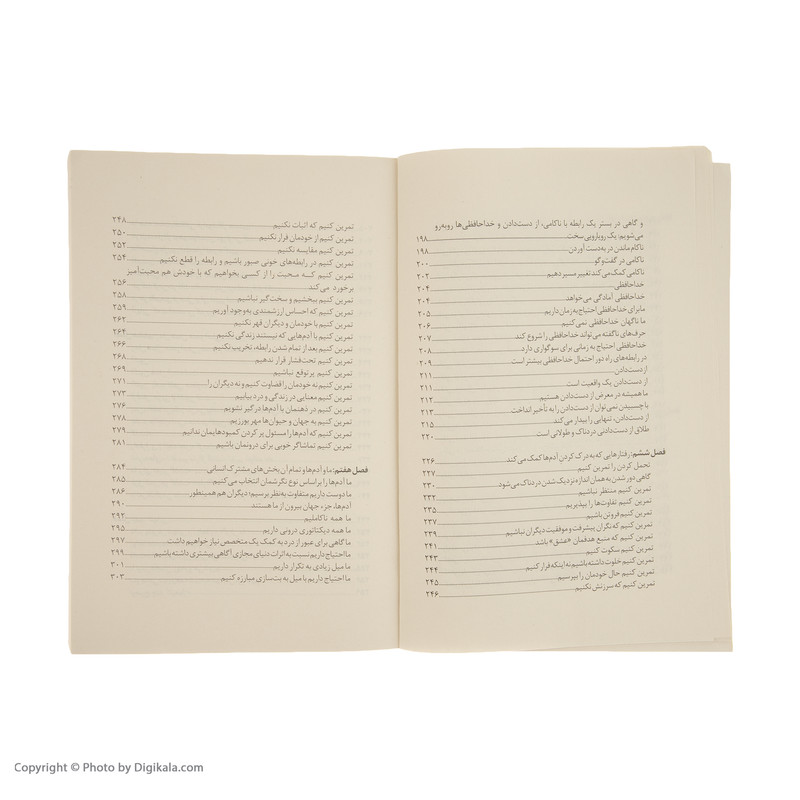 و گاهی در بستر یک رابطه با ناکامی، از دست‌دادن و خداحافظی‌ها روبه‌رو
می‌شویم: یک رویارویی سخت ۱۹۸
ناکام ماندن در به‌دست‌آوردن ۱۹۸
ناکامی در گفت‌وگو ۲۰۰
ناکامی کمک می‌کند تغییر مسیر دهیم ۲۰۲
خداحافظی ۲۰۴
خداحافظی آمادگی می‌خواهد ۲۰۴
ما برای خداحافظی احتیاج به زمان داریم ۲۰۵
ما ناگهان خداحافظی نمی‌کنیم ۲۰۶
حرف‌های ناگفته می‌تواند خداحافظی را شروع کند ۲۰۷
خداحافظی احتیاج به زمانی برای سوگواری دارد ۲۰۸
در رابطه‌های راه دور احتمال خداحافظی بیشتر است ۲۰۹
از دست‌دادن ۲۱۱
از دست‌دادن یک واقعیت است ۲۱۱
ما همیشه در معرض از دست‌دادن هستیم ۲۱۲
با چسبیدن نمی‌توان از دست‌دادن را به تأخیر انداخت ۲۱۳
از دست‌دادن، تنهایی را بیدار می‌کند ۲۱۵
طلاق از دست‌دادنی دردناک و طولانی است ۲۲۰
فصل ششم: رفتارهایی که به درک کردنِ آدم‌ها کمک می‌کند ۲۲۶
تحمل کردن را تمرین کنیم ۲۲۷
گاهی دور شدن به همان اندازه نزدیک شدن دردناک می‌شود ۲۳۰
تمرین کنیم منتظر نباشیم ۲۳۲
تمرین کنیم تفاوت‌ها را بپذیریم ۲۳۵
تمرین کنیم فروتن باشیم ۲۳۷
تمرین کنیم که نگران پیشرفت و موفقیت دیگران نباشیم ۲۳۹
تمرین کنیم که منبع هدفمان «عشق» باشد ۲۴۱
تمرین کنیم سکوت کنیم ۲۴۳
تمرین کنیم خلوت داشته باشیم نه اینکه فرار کنیم ۲۴۴
تمرین کنیم حال خودمان را بپرسیم ۲۴۵
تمرین کنیم که سرزنش نکنیم ۲۴۶
تمرین کنیم که اثبات نکنیم ۲۴۸
تمرین کنیم از خودمان فرار نکنیم ۲۵۰
تمرین کنیم مقایسه نکنیم ۲۵۲
تمرین کنیم در رابطه‌های خونی صبور باشیم و رابطه را قطع نکنیم ۲۵۴
تمرین کنیم که محبت را از کسی بخواهیم که با خودش هم محبت‌آمیز
برخورد می‌کند ۲۵۶
تمرین کنیم ببخشیم و سخت‌گیر نباشیم ۲۵۸
تمرین کنیم که احساس ارزشمندی به‌وجود آوریم ۲۵۹
تمرین کنیم با خودمان و دیگران قهر نکنیم ۲۶۲
تمرین کنیم با آدم‌هایی که نیستند زندگی نکنیم ۲۶۴
تمرین کنیم بعد از تمام شدن رابطه، تخریب نکنیم ۲۶۶
تمرین کنیم تحت‌فشار قرار ندهیم ۲۶۸
تمرین کنیم پرتوقع نباشیم ۲۶۹
تمرین کنیم نه خودمان را قضاوت کنیم و نه دیگران را ۲۷۱
تمرین کنیم معنایی در زندگی و درد بیابیم ۲۷۳
تمرین کنیم در ذهنمان با آدم‌ها درگیر نشویم ۲۷۶
تمرین کنیم به جهان و حیوان‌ها مهر بورزیم ۲۷۸
تمرین کنیم که آدم‌ها را مسئول پر کردن کمبودهایمان ندانیم ۲۷۹
تمرین کنیم تماشاگر خوبی برای درونمان باشیم ۲۸۱
فصل هفتم: ما و آدم‌ها و تمام آن بخش‌های مشترک انسانی ۲۸۴
ما آدم‌ها را براساس نوع نگرشمان انتخاب می‌کنیم ۲۸۵
ما دوست داریم متفاوت به‌نظر برسیم؛ دیگران هم همینطور ۲۸۶
آدم‌ها، جزء جهان بیرون از ما هستند ۲۹۰
ما همه ناکاملیم ۲۹۲
ما همه دیکتاتوری درونی داریم ۲۹۵
ما گاهی برای عبور از درد به کمک یک متخصص نیاز خواهیم داشت ۲۹۷
ما احتیاج داریم نسبت به اثرات دنیای مجازی آگاهی بیشتری داشته باشیم ۲۹۹
ما میل زیادی به تکرار داریم ۳۰۱
ما احتیاج داریم با میل به بت‌سازی مبارزه کنیم ۳۰۳
Copyright © Photo by Digikala.com